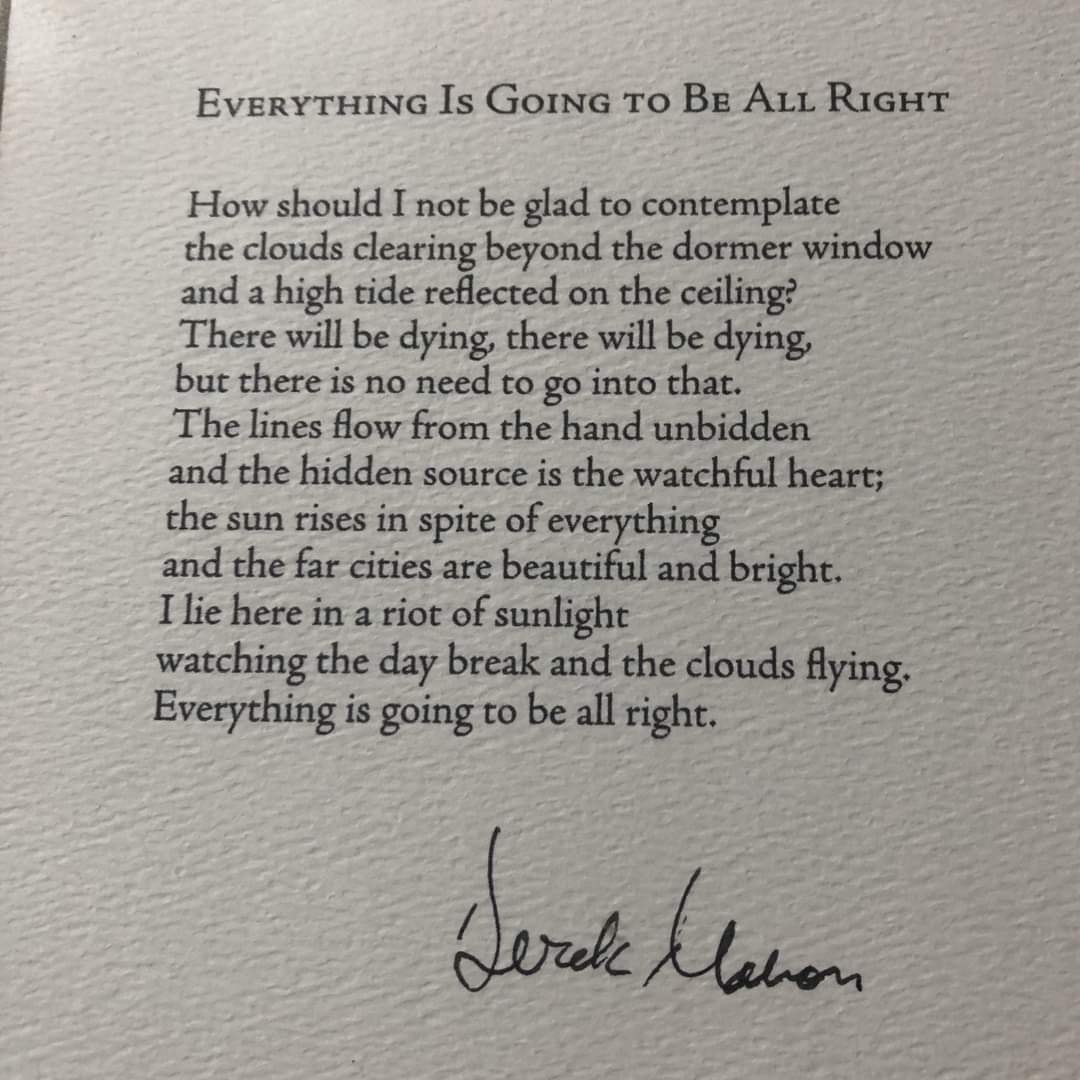 Everything Is Going to Be All Right
How should I not be glad to contemplate
the clouds clearing beyond the dormer window
and a high tide reflected on the ceiling?
There will be dying, there will be dying,
but there is no need to go into that.
The lines flow from the hand unbidden
and the hidden source is the watchful heart;
the sun rises in spite of everything
and the far cities are beautiful and bright.
I lie here in a riot of sunlight
watching the day break and the clouds flying.
Everything is going to be all right.
Derek Mahon